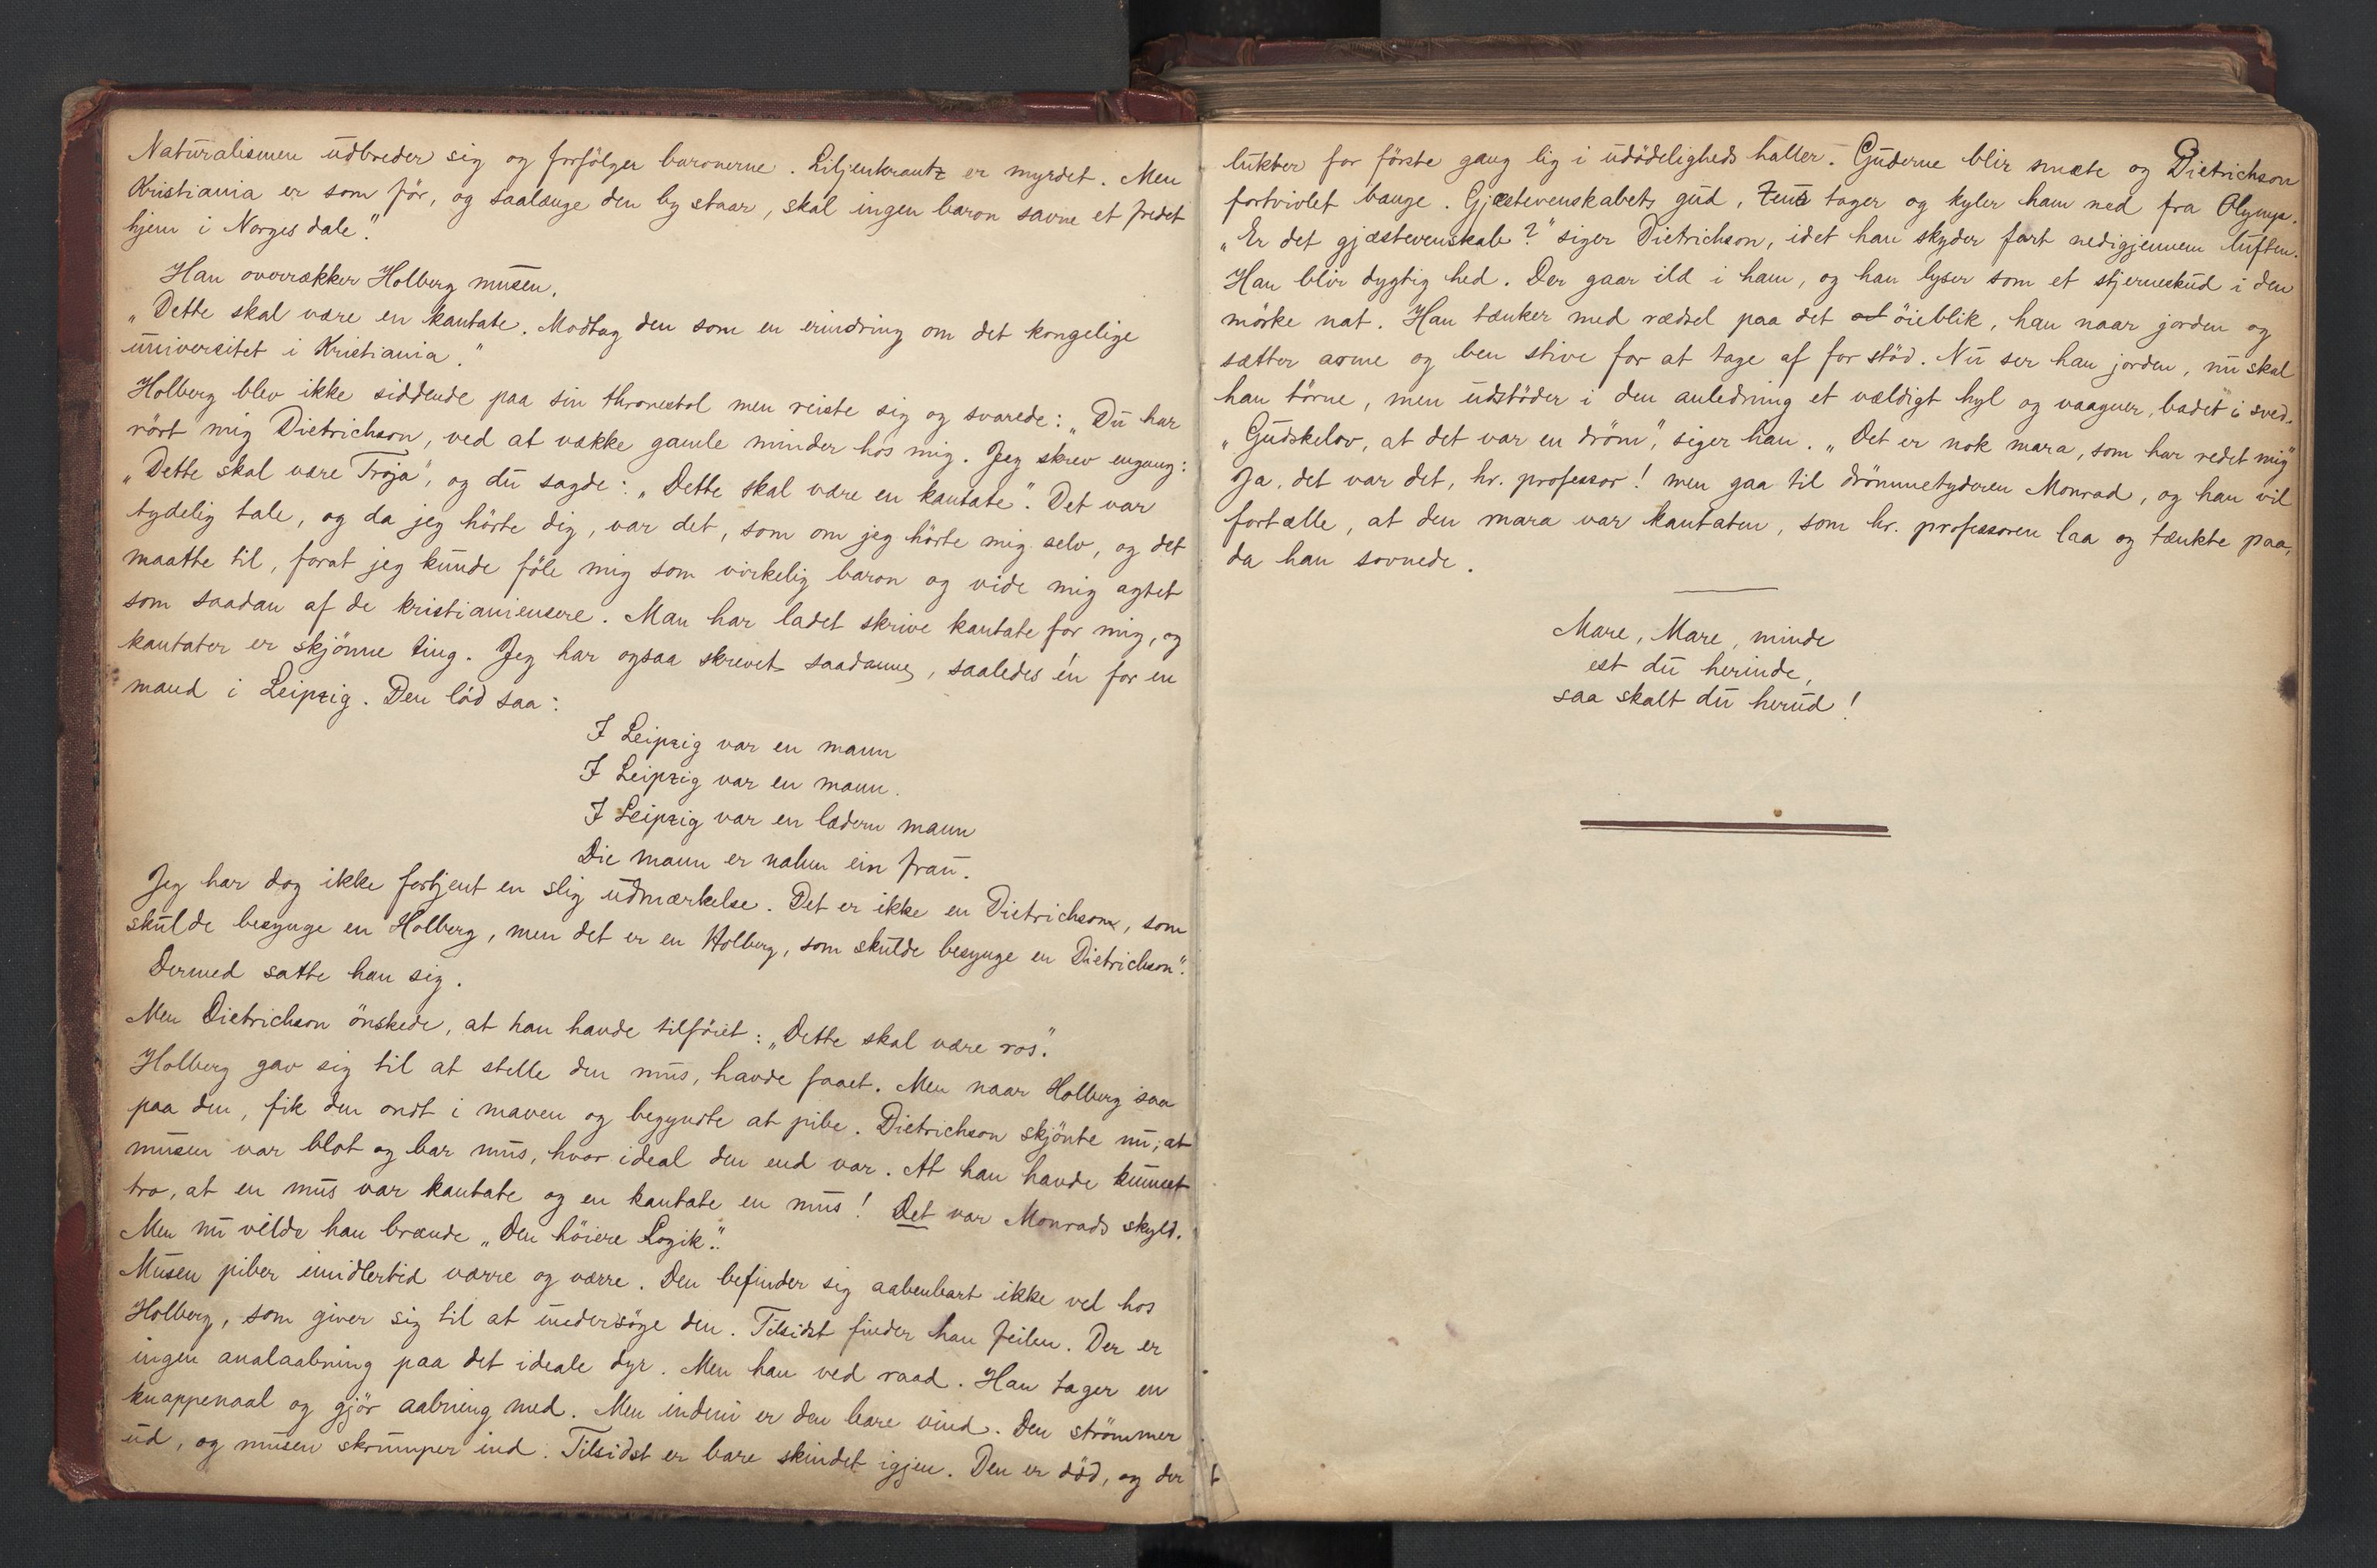 Naturalismen udbreder sig og forfölger baronerne. Liljenkrantz er myrdet. Men
Kristiania er som för, og saalænge den by staar, skal ingen baron savne et fredet
hjem i Norges dale."
Han overrækker Holberg musen.
„Dette skal være en kantate. Modtag den som en erindring om det kongelige
universitet i Kristiania."
Holberg blev ikke siddende paa sin thronestol men reiste sig og svarede: „Du har
rört mig Dietrichson, ved at vække gamle minder hos mig. Jeg skrev engang:
„Dette skal være Troja", og du sagde: „Dette skal være en kantate". Det var
tydelig tale, og da jeg hörte dig, var det, som om jeg hörte mig selv, og det
maatte til, forat jeg kunde föle mig som virkelig baron og vide mig agtet
som saadan af de kristianiensere. Man har ladet skrive kantate for mig, og
kantater er skjönne ting. Jeg har ogsaa skrevet saadanne, saaledes én for en
mand i Leipzig. Den löd saa:
I Leipzig var en mann
I Leipzig var en mann.
I Leipzig var en lædern mann
Die mann er nahm ein frau.
Jeg har dog ikke fortjent en slig udmærkelse. Det er ikke en Dietrichson, som
skulde besynge en Holberg, men det er en Holberg, som skulde besynge en Dietrichson".
Dermed satte han sig.
Men Dietrichson önskede, at han havde tilföiet: „Dette skal være ros".
Holberg gav sig til at stelle den mus, havde faaet. Men naar Holberg saa
paa den, fik den ondt i maven og begyndte at pibe. Dietrichson skjönte nu, at
musen var blot og bar mus, hvor ideal den end var. At han havde kunnet
tro, at en mus var kantate og en kantate en mus! Det var Monrads skyld.
Men nu vilde han brænde „Den höiere Logik".
Musen piber imidlertid værre og værre. Den befinder sig aabenbart ikke vel hos
Holberg, som giver sig til at undersöge den. Tilsidst finder han feilen. Der er
ingen analaabning paa det ideale dyr. Men han ved raad. Han tager en
knappenaal og gjör aabning med. Men indeni er den bare vind. Den strömmer
ud, og musen skrumper ind. Tilsidst er bare skindet igjen. Den er död, og der
lukter for förste gang lig i udödeligheds haller. Guderne blir smæte og Dietrichson
fortvivlet bange. Gjæstevenskabets gud, Zeus tager og kyler ham ned fra Olymp.
„Er det gjæstevenskab?" siger Dietrichson, idet han skyder fart nedigjennem luften.
Han blir dygtig hed. Der gaar ild i ham, og han lyser som et stjerneskud i den
mörke nat. Han tænker med rædsel paa det öieblik, han naar jorden og
sætter arme og ben stive for at tage af for stöd. Nu ser han jorden, nu skal
han törne, men udstöder i den anledning et vældigt hyl og vaagner, badet i sved.
„Gudskelov, at det var en dröm", siger han. „Det er nok mara, som har redet mig"
Ja, det var det, hr. professor! men gaa til drömmetyderen Monrad, og han vil
fortælle, at den mara var kantaten, som hr. professoren laa og tænkte paa,
da han sovnede.
Mare, Mare, minde
est du herinde,
saa skalt du herud!